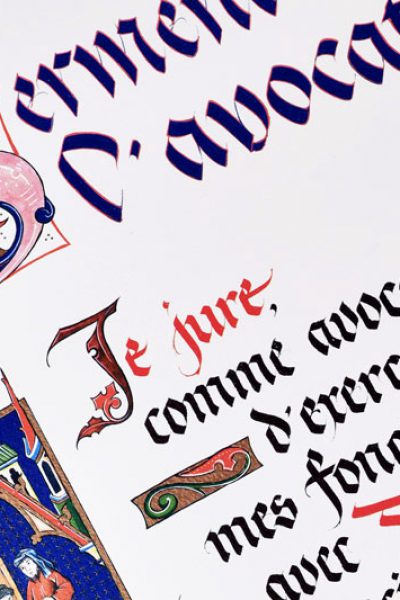 Serment
l'avocat
Je jure,
comme avoca
d'exerc
mes fonc
avec